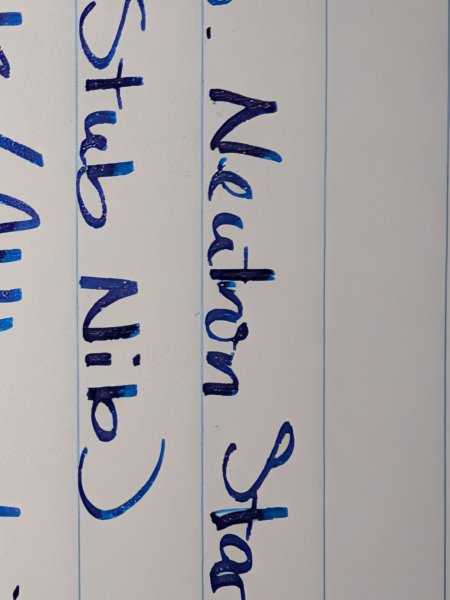 Neutron Star
Stub Nib)